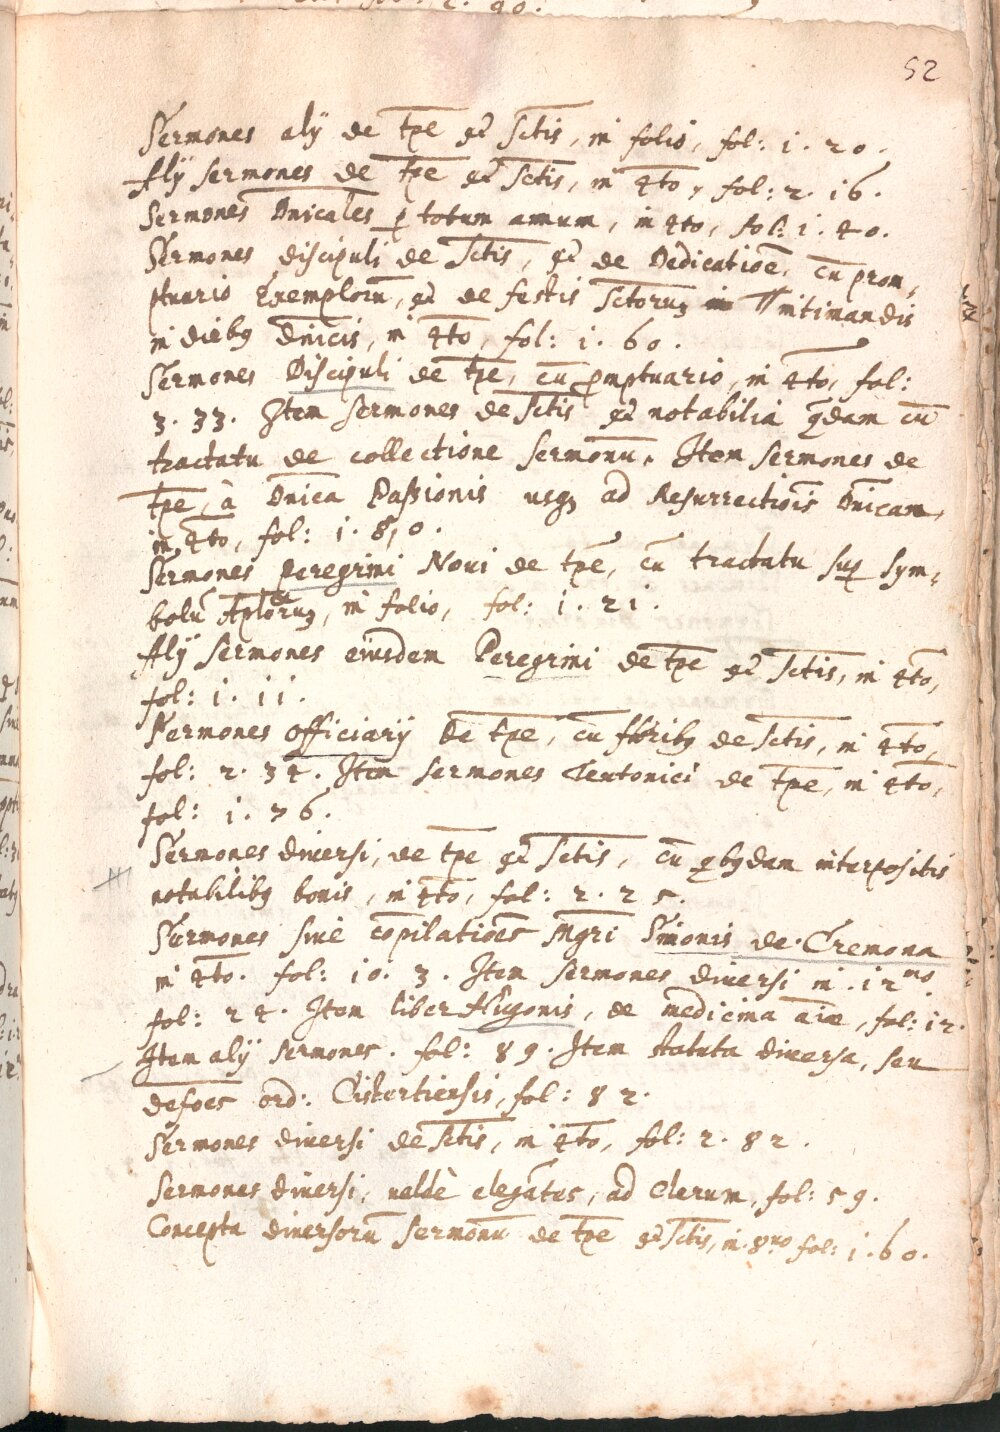 52
Sermones alÿ de tp̄e et Sctīs, in folio, fol: 1. 20.
Alÿ sermones de tp̄e et Sctīs, in 4to, fol: 2. 16.
Sermones Dn̄icales p totum annum, in 4to, fol: 1. 40.
Sermones discipuli de Sctīs, et de Dedicatiōe, cū prom,
ptuario Exemplorū, et de festis Sctōruʒ in intimandis
in diebꝰ dn̄icis, in 4to, fol: 1. 60.
Sermones Discipuli de tp̄e, cū promptuario, in 4to, fol:
3. 33. Item Sermones de Sctīs et notabilia q̄dam cū
tractatu de collectione sermonū. Item sermones de
tp̄e, à Dn̄ica Passionis usqʒ ad Resurrectiōis Dn̄icam,
in 4to, fol: 1. 80.
Sermones peregrini Noui de tp̄e, cū tractatu sup Sym,
bolū Aplōruʒ, in folio, fol: 1. 21.
Alÿ Sermones eiusdem Peregrini de tp̄e et Sctīs, in 4to,
fol: 1. 11.
Sermones officiarÿ De tp̄e, cū de Sctīs, in 4to,
fol: 2. 34. Item sermones Teutonici de tp̄e, in 4to,
fol: 1. 76.
Sermones diuersi, de tp̄e et Sctīs, cū qbꝰdam interpositis
notabilibꝰ bonis, in 4to, fol: 2. 25.
Sermones siue cōpilatiōes Mgrī Simonis de Cremona
in 4to. fol: 10. 3. Item sermones diuersi in 12mo.
fol: 24. Item liber Hugonis, de medicina aīæ, fol: 12.
Item alÿ sermones. fol: 89. Item statuta diuersa, seu
defōes ord: Cistertiensis, fol: 82.
Sermones diuersi de Sctīs, in 4to, fol: 2. 82.
Sermones diuersi, ualdè elegātes, ad Clerum, fol: 59.
Concepta diuersorū sermonū de tp̄e et Sctīs, in 8uo fol: 1. 60.